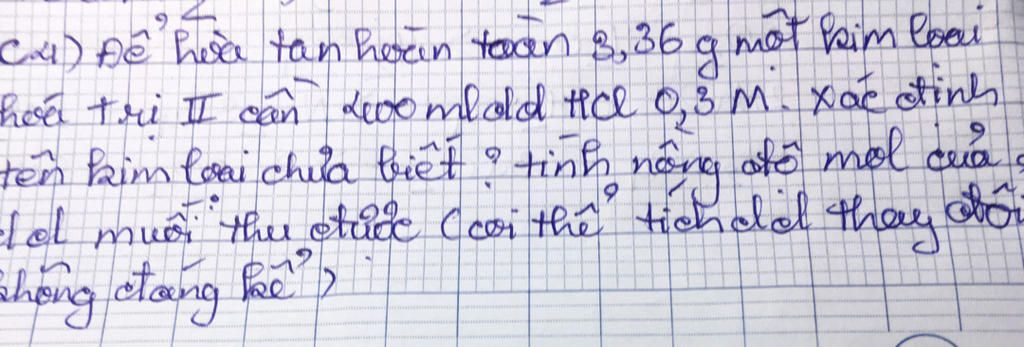 C4) Để hòa tan hoàn toàn 3,36 g một kim loại
hoá trị II cần 400 ml dd HCl 0,3 M. Xác định
tên kim loại chưa biết? tính nồng độ mol của
dd muối thu được (coi thể tích dd thay đổi
không đáng kể)